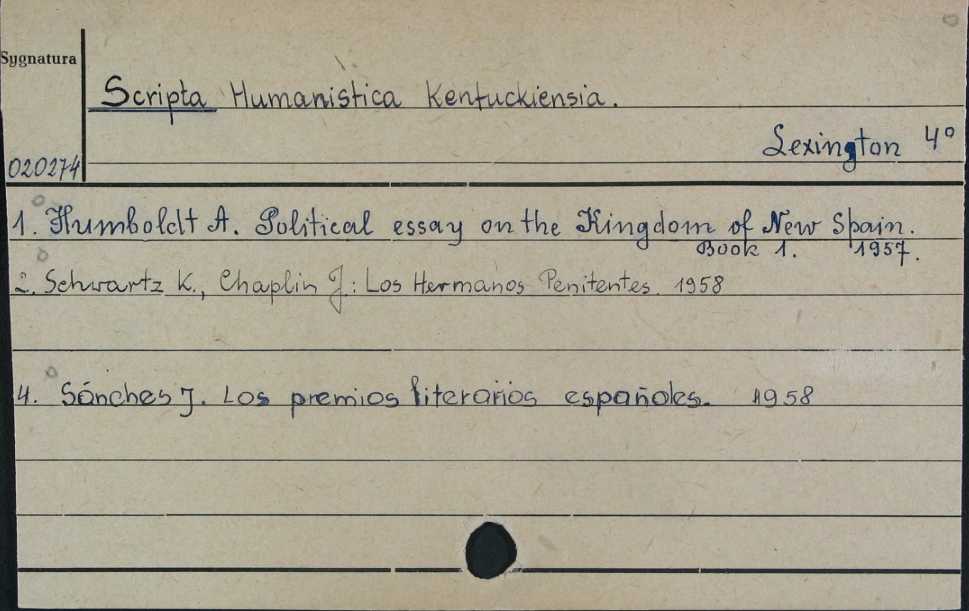 Sygnatura
Scripta Humanistica Kentuckiensia.
Lexington 4°
020274
1. Humboldt A. Political essay on the Kingdom of New Spain.
Book 1. 1957.
2. Schwartz K., Chaplin J.: Los Hermanos Penitentes. 1958
4. Sánches J. Los premios literarios españoles. 1958